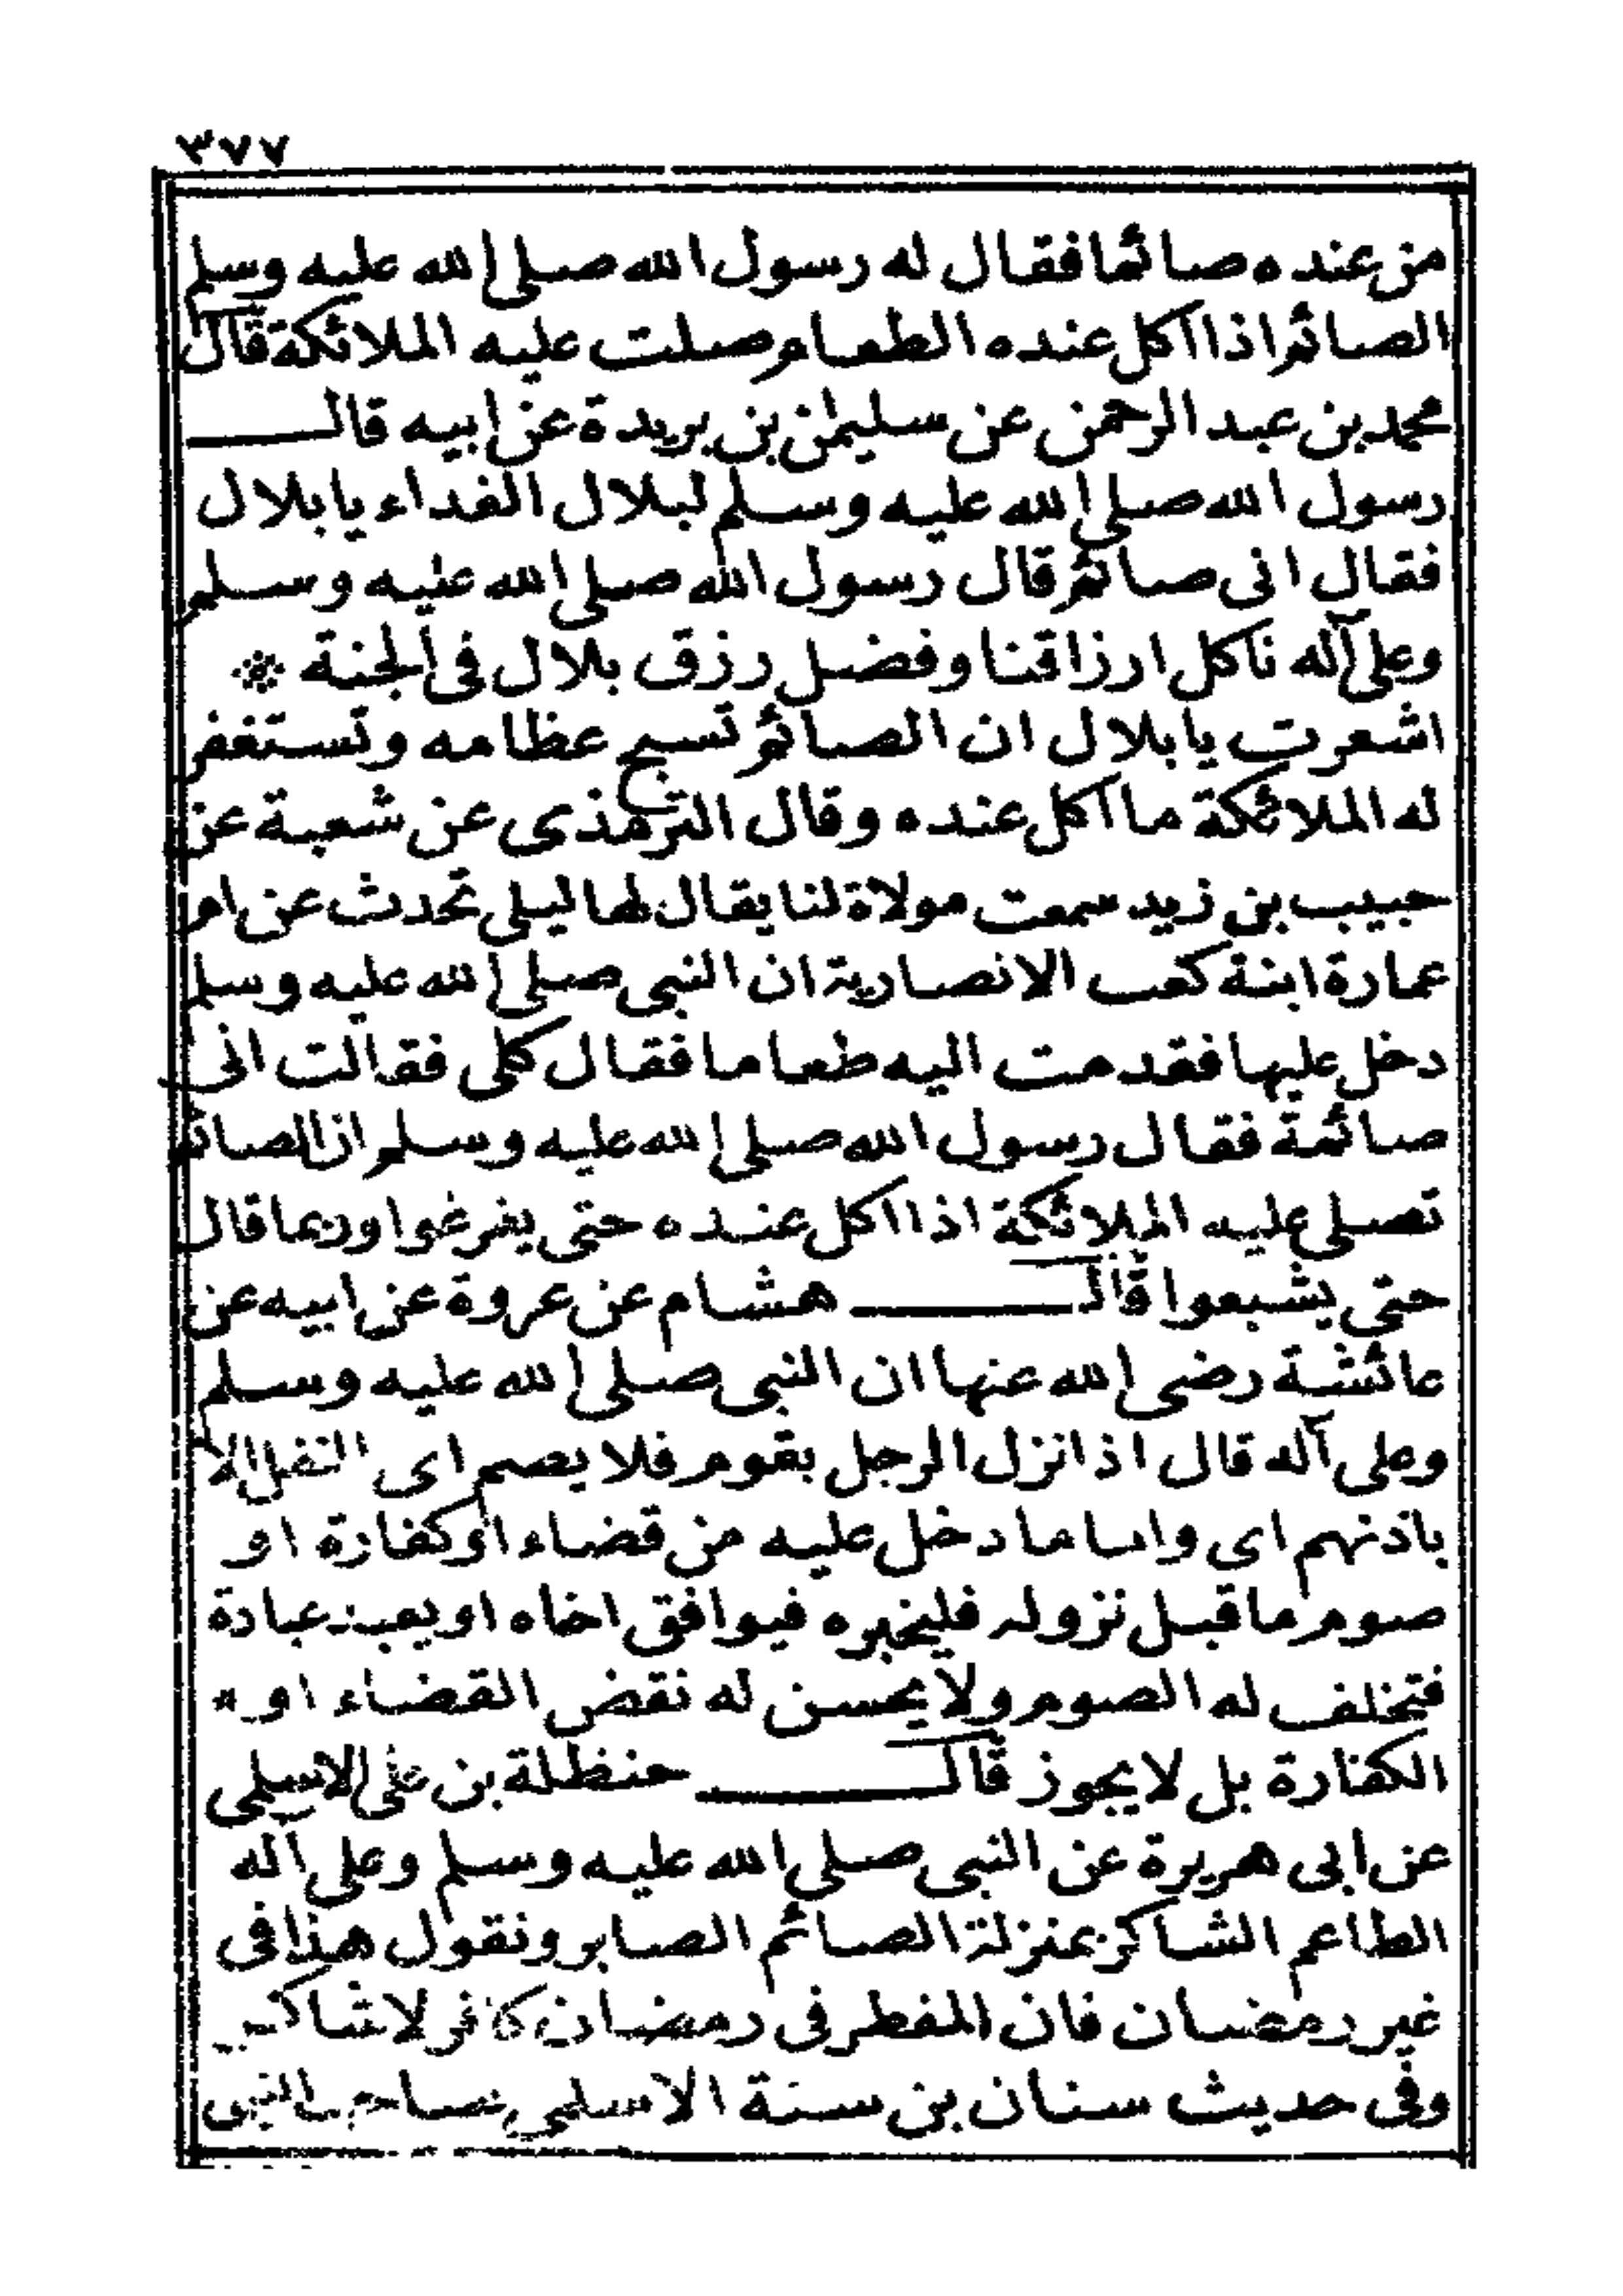 ٣٧٧
من عنده صائما فقال له رسول الله صلى الله عليه وسلم
الصائم اذا اكل عنده الطعام صلت عليه الملائكة قال
محمد بن عبد الرحمن عن سليمن بن بريدة عن ابيه قال
رسول الله صلى الله عليه وسلم لبلال الغداء يا بلال
فقال انى صائم قال رسول الله صلى الله عليه وسلم
وعلى آله ناكل ارزاقنا وفضل رزق بلال فى الجنة *
اشعرت يا بلال ان الصائم تسبح عظامه وتستغفر
له الملائكة ما اكل عنده وقال الترمذى عن شعبة عن
حبيب بن زيد سمعت مولاة لنا يقال لها ليلى تحدث عن ام
عمارة ابنة كعب الانصارية ان النبى صلى الله عليه وسلم
دخل عليها فقدمت اليه طعاما فقال كلى فقالت انى
صائمة فقال رسول الله صلى الله عليه وسلم ان الصائم
تصلى عليه الملائكة اذا اكل عنده حتى يفرغوا وربما قال
حتى يشبعوا قال هشام عن عروة عن ابيه عن
عائشة رضى الله عنها ان النبى صلى الله عليه وسلم
وعلى آله قال اذا نزل الرجل بقوم فلا يصم اى النفل الا
باذنهم اى واما ما دخل عليه من قضاء او كفارة او
صوم ما قبل نزوله فليخبره فيوافق اخاه او عبادة
فتخلف له الصوم ولا يحسن له نقض القضاء او *
الكفارة بل لا يجوز قال حنظلة بن على الاسلمى
عن ابى هريرة عن النبى صلى الله عليه وسلم وعلى آله
الطاعم الشاكر بمنزلة الصائم الصابر ونقول هذا فى
غير رمضان فان المفطر فى رمضان كافر لا شاكر
وفى حديث سنان بن سنة الاسلمى صاحب النبى